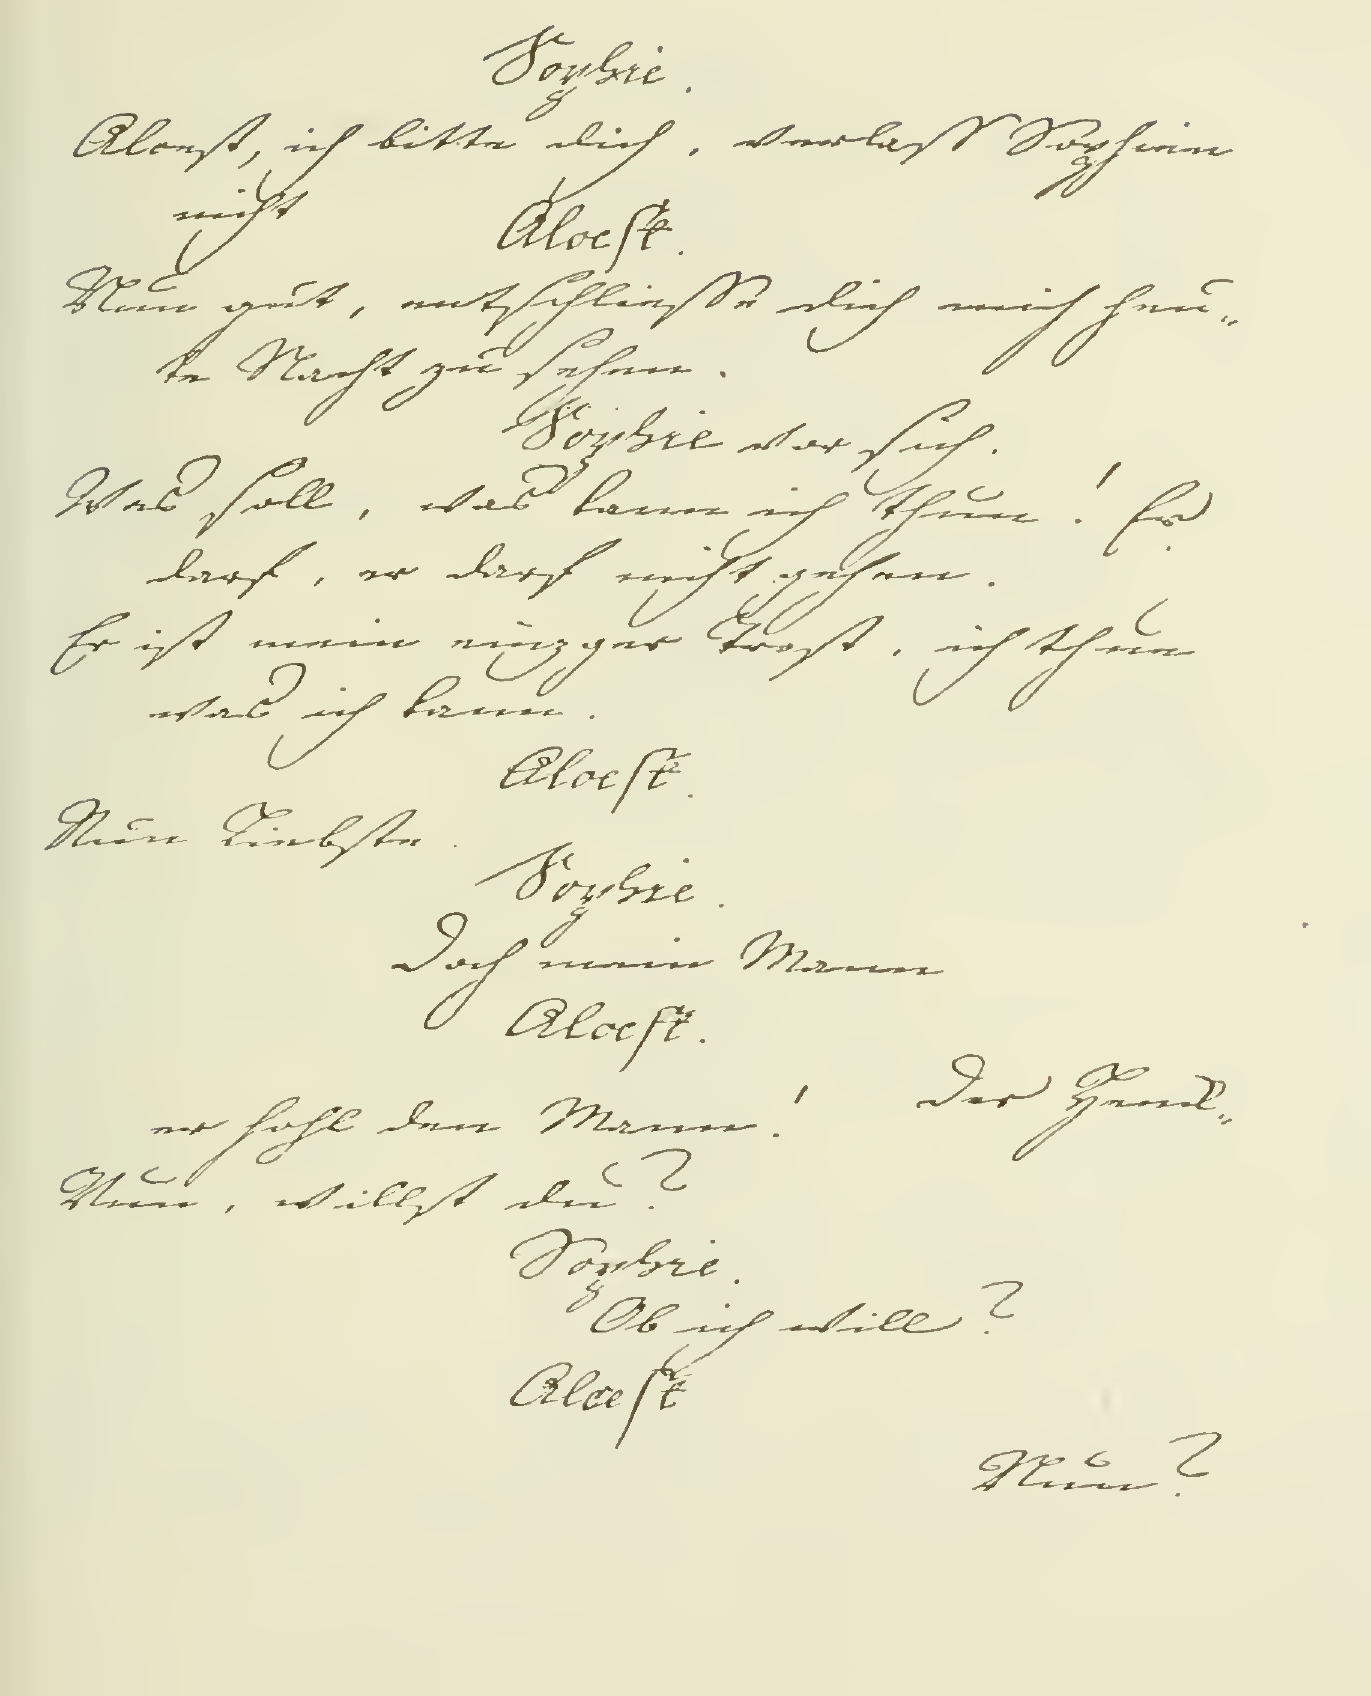 Sophie.
Alcest, ich bitte dich, verlaß Sophien
nicht
Alcest.
Nun gut, entschliesse dich mich heu„
te Nacht zu sehen.
Sophie vor sich.
Was soll, was kann ich thun! Er
darf, er darf nicht gehen.
Er ist mein einzger Trost, ich thue
was ich kann.
Alcest.
Nun Liebste.
Sophie.
Doch mein Mann
Alcest.
Der Henck„
er hohl den Mann!
Nun, willst du?
Sophie.
Ob ich will?
Alcest
Nun?